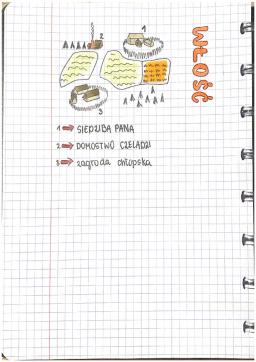 WŁOŚĆ
1
2
3
1 → SIEDZIBA PANA
2 → DOMOSTWO CZELADZI
3 → zagroda chłopska